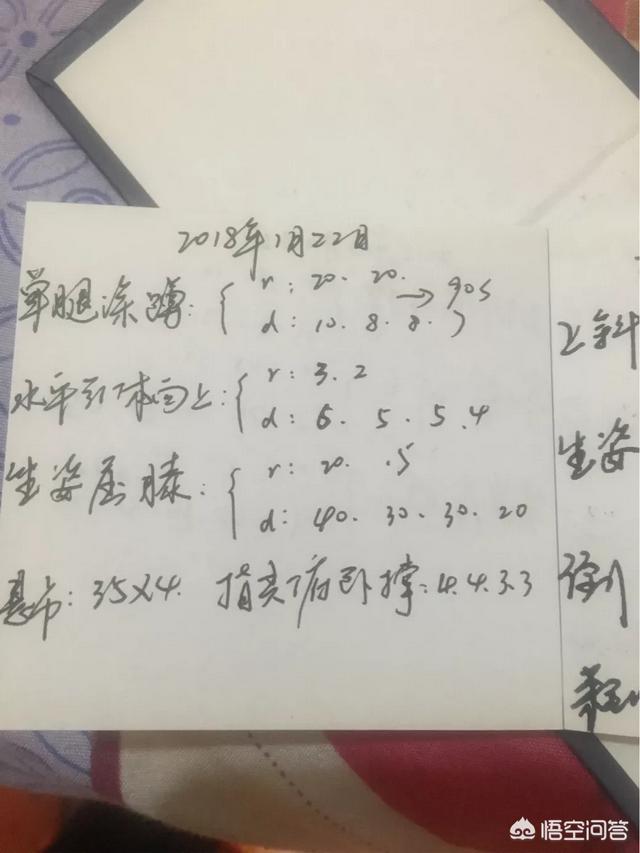 2018年1月22日
单腿深蹲: r: 20. 20. → 90s
d: 10. 8. 8. 7
水平引体向上: r: 3. 2
d: 6. 5. 5. 4
坐姿屈膝: r: 20. .5
d: 40. 30. 30. 20
悬吊: 35×4. 指尖俯卧撑: 4. 4. 3. 3
上斜
坐姿
悟空问答